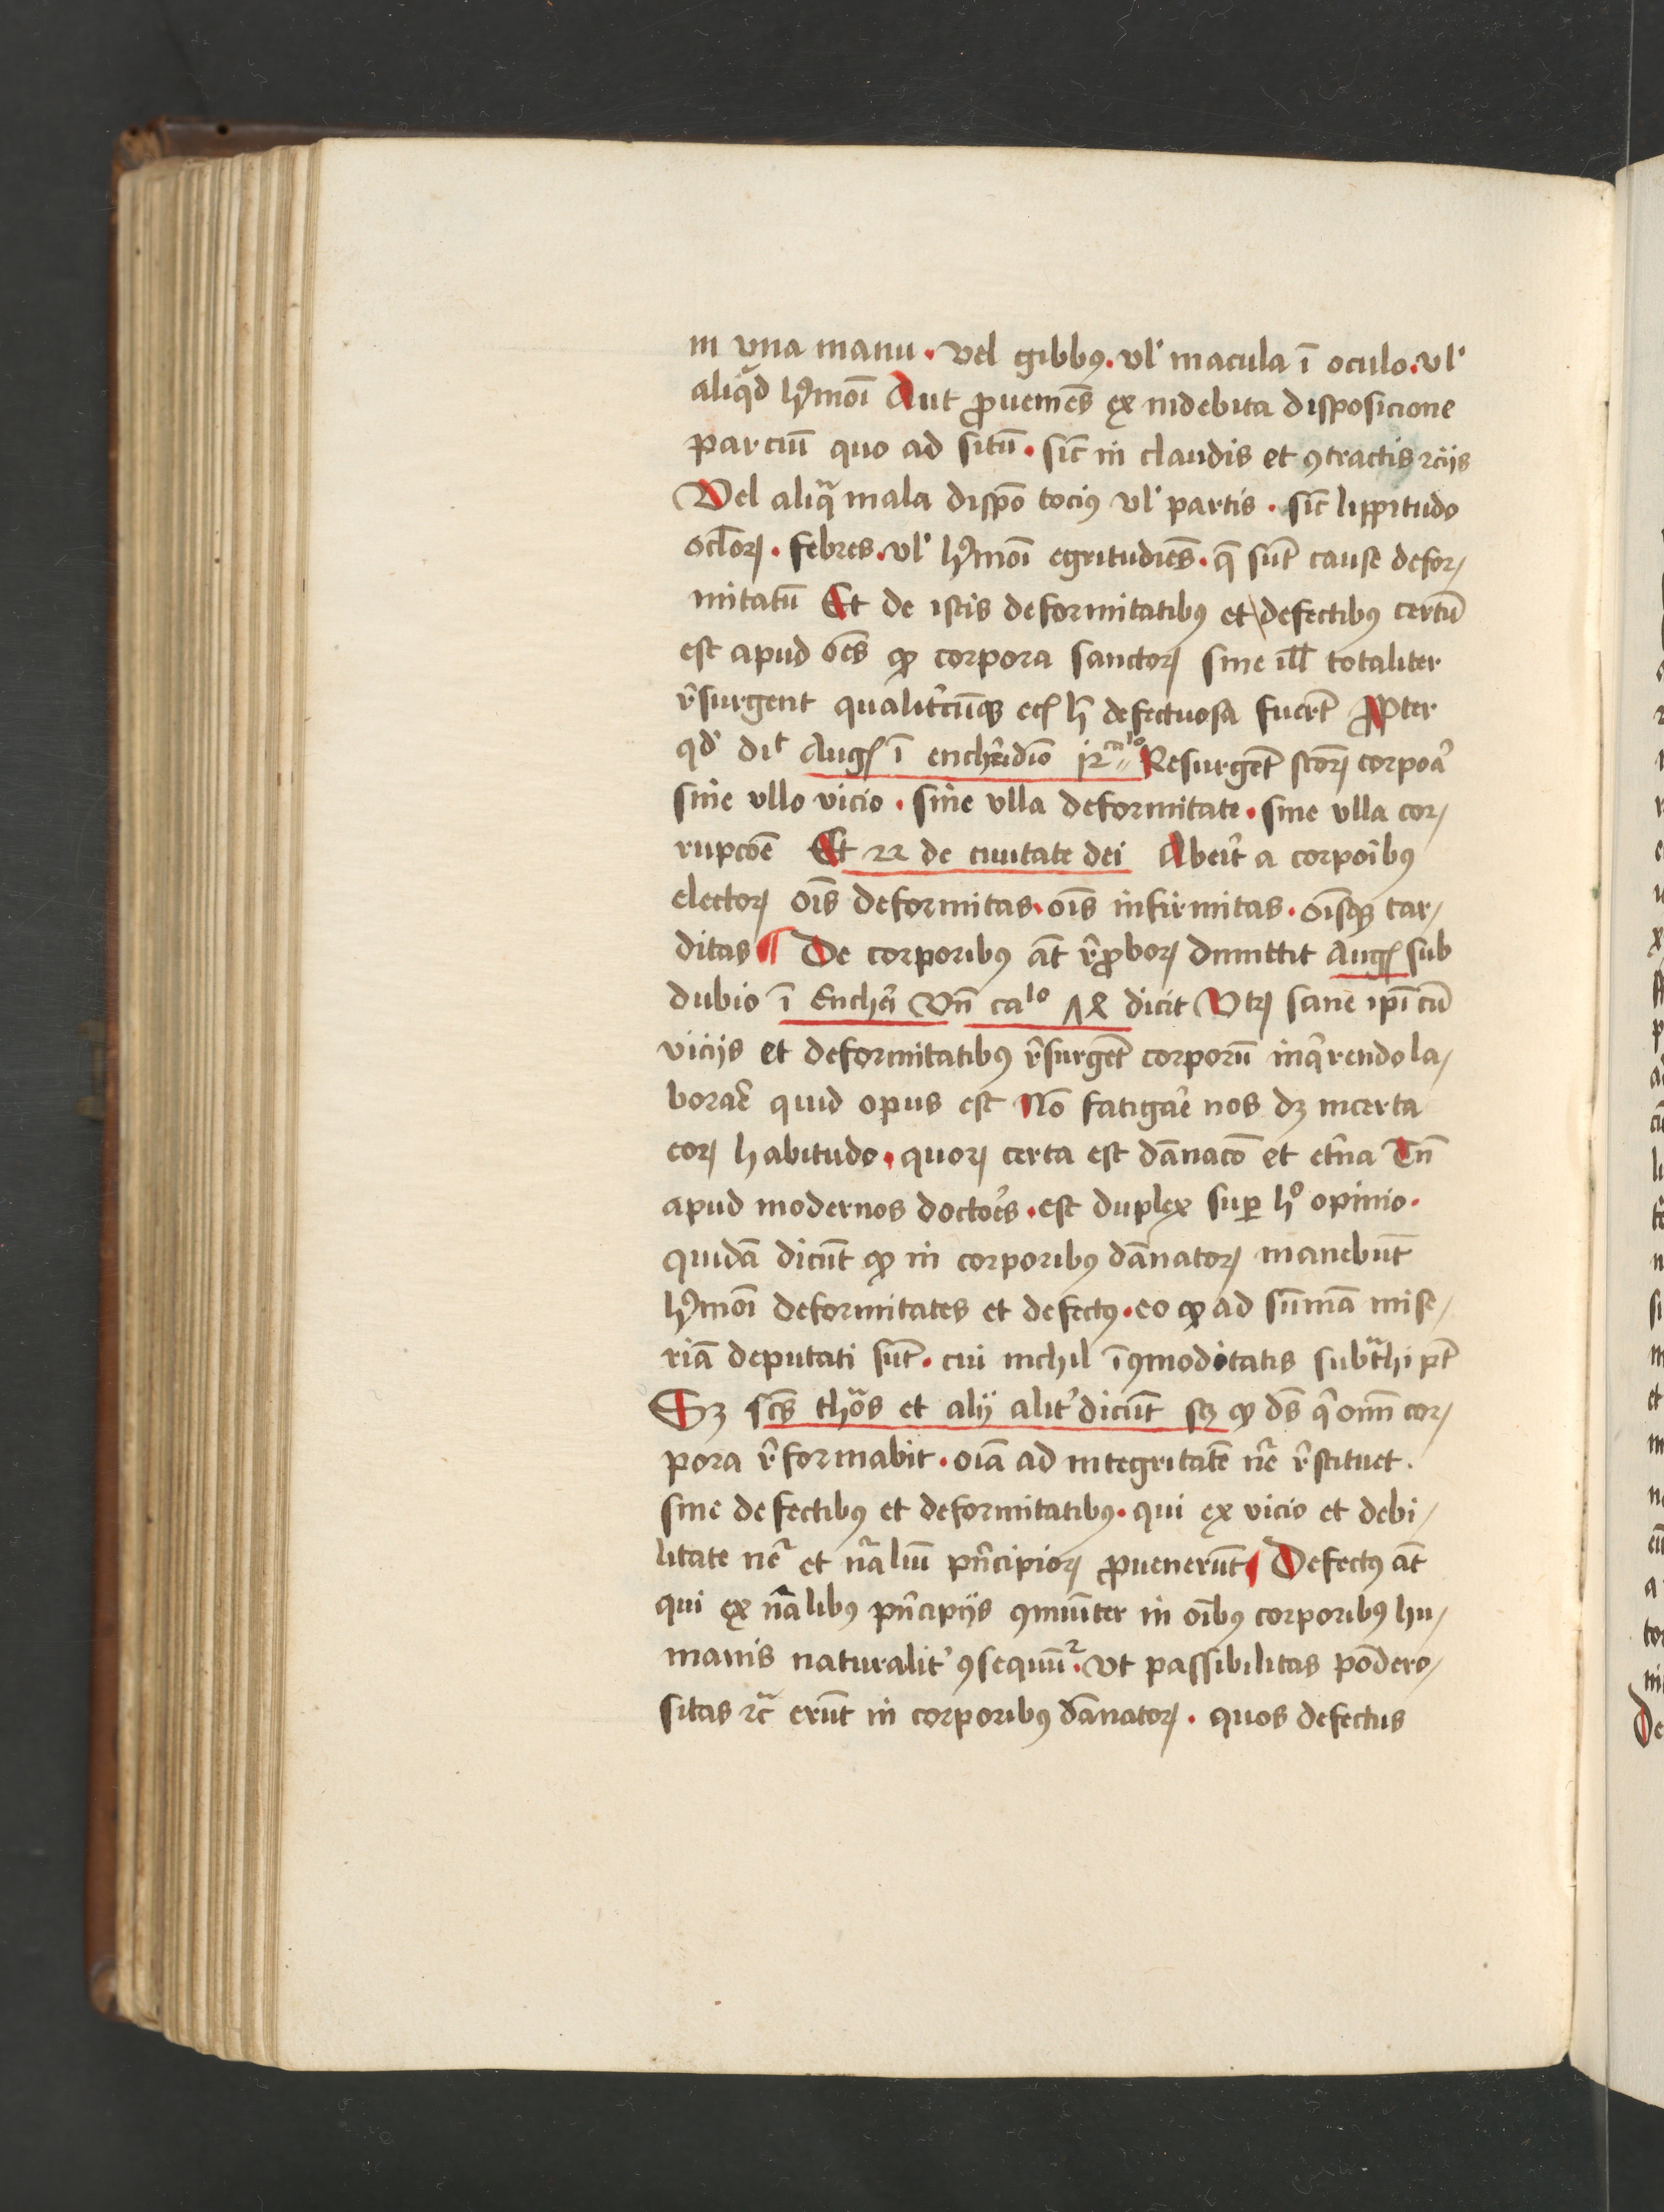 in vna manu . vel gibbꝰ . vl' macula ī oculo . vl'
aliqͣd hꝰmōi Aut ꝓuemēs ex indebita disposicione
parciū quo ad sitū . sic̄ in claudis et ꝯtractis rͨijs
Vel aliqͣ mala dispō tociꝰ vl' partis . sic̄ lippitudo
ocl̄oꝝ . febres . vl' hꝰmōi egritudīes . q̄ sūt cause defor/
mitatū Et de istis deformitatibꝰ et defectibꝰ certū
est apud oēs ꝙ corpora sanctoꝝ sine ill̄ totaliter
r̄surgent qualit'cūqꝫ ecꝭ h̄ defectuosa fuer̄t ꝓpter
qd' dit Augꝭ ī enchr̄idio Resurgēt sc̄oꝝ corpoa᷑
sine vllo vicio . sine vlla deformitate . sine vlla cor/
rupcōe Et 22 de ciuitate dei Abeit̄ a corpoībꝰ
electoꝝ oīs deformitas . oīs infirmitas . oīsqꝫ tar/
ditas ¶ De corporibꝰ aūt r̄ꝓboꝝ dimittit Augꝭ sub
dubio ī Ench̄i Vn̄ caˡᵒ dicit Vtꝝ sane ip̄i cū
vicijs et deformitatibꝰ r̄surgēt corporū inqͥrendo la/
borar̄e quid opus est Nō fatigar̄e nos dꝫ incerta
eoꝝ habitudo . quoꝝ certa est dānacō et et̄na Tn̄
apud modernos doctor̄es . est duplex suꝑ hᵒ opinio .
quidā dicūt ꝙ in corporibꝰ dānatoꝝ manebūt
hꝰmōi deformitates et defectꝰ . eo ꝙ ad sūmā mise/
riā deputati sūt . cui nichil īꝯmoditatis subtͣhi pt̄
Sꝫ sc̄s thōs et alij alit' dicūt sꝫ ꝙ ds̄ qͥ om̄ cor/
pora r̄formabit . oīa ad integritatē nr̄e r̄stituet .
sine defectibꝰ et deformitatibꝰ . qui ex vicio et debi/
litate nr̄e et nr̄aliū pn̄cipioꝝ ꝓuenerūt ¶ Defectꝰ aūt
qui ex nr̄alibꝰ pn̄cipijs ꝯmūiter in oībꝰ corporibꝰ hu/
manis naturalit' ꝯsequūt᷑ . vt passibilitas pōdero/
sitas rc̄ erūt in corporibꝰ dānatoꝝ . quos defectus